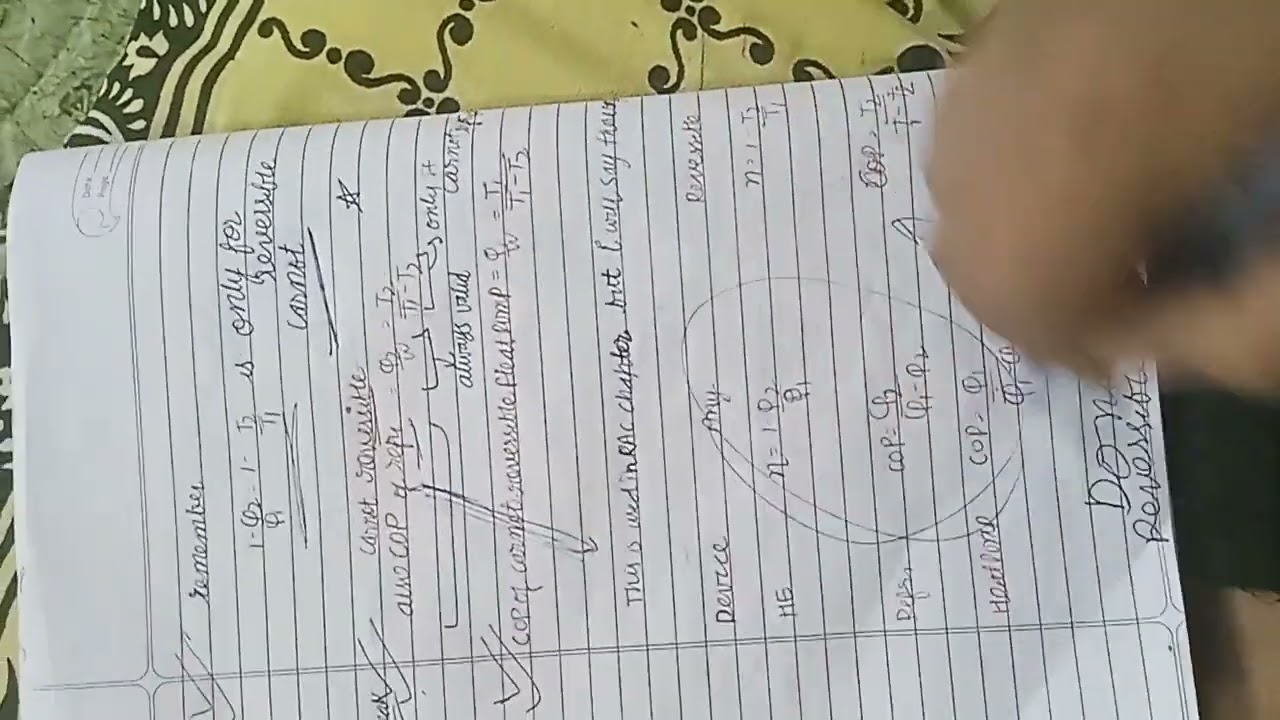 Date
Page
remember
1-Q2/Q1 = 1-T2/T1 is only for
reversible
carnot
carnot reversible
also COP of refri = Q2/W = T2/T1-T2
always valid
only if
carnot
COP of carnot reversible Heat Pump = Q1/W = T1/T1-T2
This is used in RAC chapter but I will say
Device Any Reversible
HE η = 1-Q2/Q1 η = 1-T2/T1
Refri COP = Q2/Q1-Q2 COP = T2/T1-T2
COP = Q1/Q1
Reversible